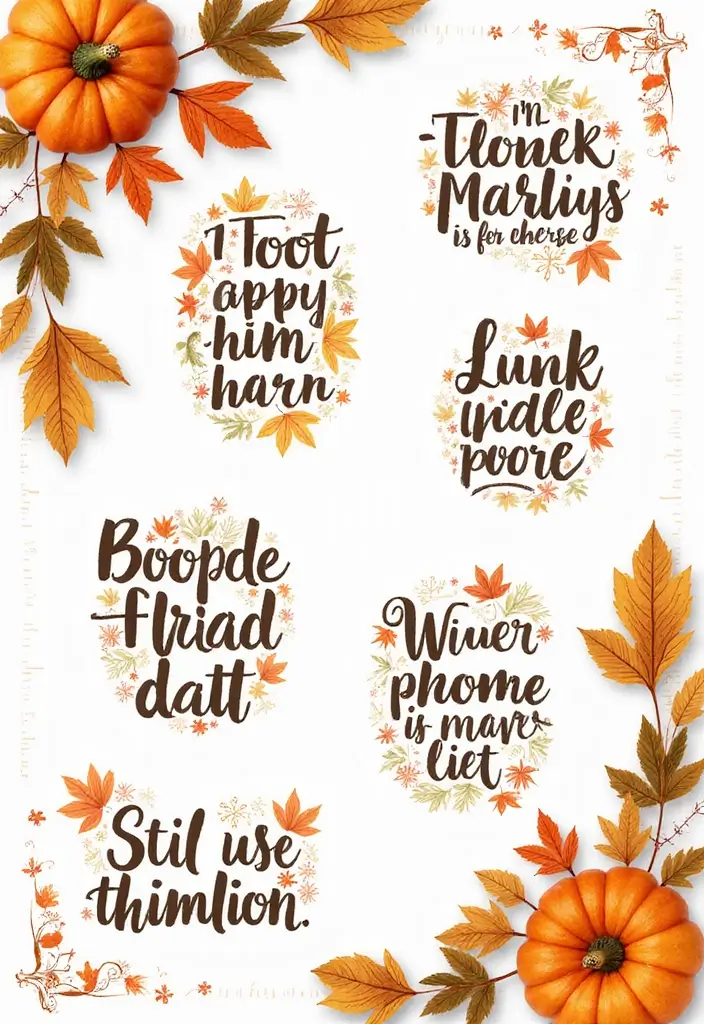 I'n
Tlonek
Marliys
is fer cherse
1 Toot
appy
him
harn
Lunk
indle
poore
Boopde
flriad
datt
Wiuer
phome
is mave
liet
Stil use
thimlion.